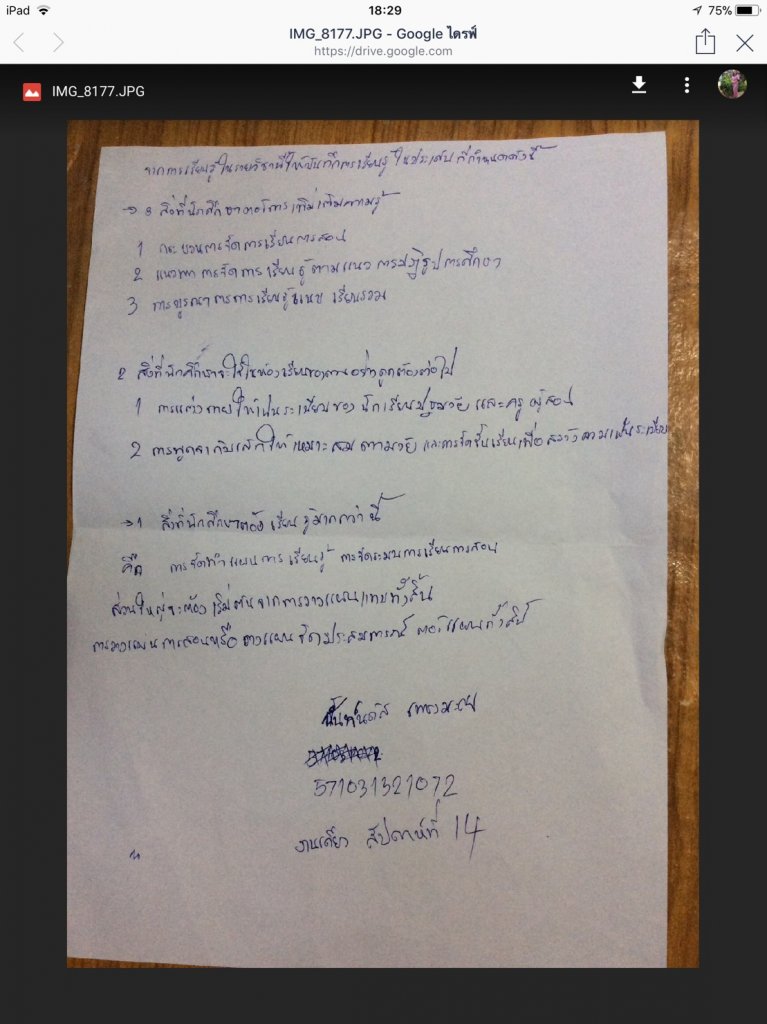 iPad 18:29 75%
IMG_8177.JPG - Google ไดรฟ์
https://drive.google.com
IMG_8177.JPG
จากการเรียนรู้ในรายวิชานี้ให้บันทึกการเรียนรู้ในประเด็นที่กำหนดดังนี้
→ 3 สิ่งที่นักศึกษาต้องการเพิ่มเติมความรู้
1 กระบวนการจัดการเรียนการสอน
2 แนวทางการจัดการเรียนรู้ตามแนวการปฏิรูปการศึกษา
3 การบูรณาการการเรียนรู้แบบเรียนรวม
2 สิ่งที่นักศึกษาจะใช้ในห้องเรียนของตนอย่างถูกต้องต่อไป
1 การแต่งกายให้เป็นระเบียบของนักเรียนปฐมวัย และครูผู้สอน
2 การพูดจากับเด็กให้เหมาะสมตามวัย และการจัดชั้นเรียนเพื่อสร้างความเป็นระเบียบ
→ 1 สิ่งที่นักศึกษาต้องเรียนรู้มากกว่านี้
คือ การจัดทำแผนการเรียนรู้ การจัดระบบการเรียนการสอน
ส่วนใหญ่จะต้องเริ่มต้นจากการวางแผนแทบทั้งสิ้น
การวางแผนการสอนหรือวางแผนจัดประสบการณ์
571031321072
งานเดี่ยว สัปดาห์ที่ 14